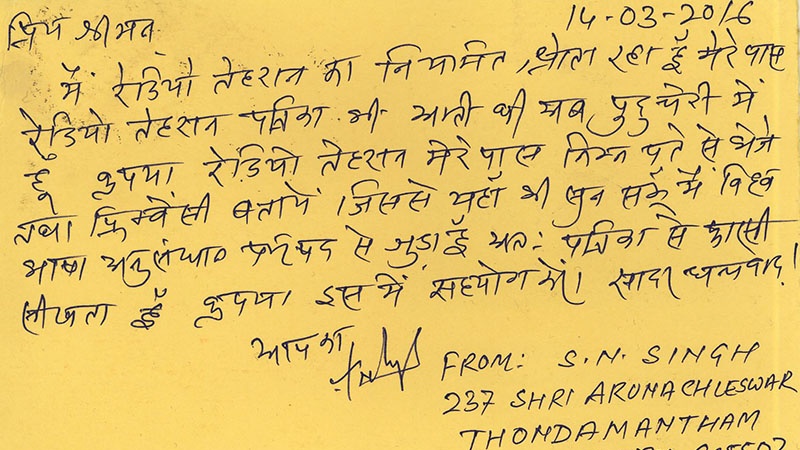 14-03-2016
प्रिय श्रीमन्,
मैं रेडियो तेहरान का नियमित श्रोता रहा हूँ मेरे पास
रेडियो तेहरान पत्रिका भी आती थी अब पुदुचेरी में
हू कृपया रेडियो तेहरान मेरे पास निम्न पते से भेजे
तथा फ्रिक्वेंसी बतायें जिससे यहाँ भी सुन सकूँ मैं विश्व
भाषा अनुसंधान परिषद से जुडा हूँ अतः पत्रिका से फारसी
सीखता हूँ कृपया इस में सहयोग दें। सादर धन्यवाद!
आपका
FROM: S.N. SINGH
237 SHRI ARUNACHLESWAR
THONDAMANTHAM